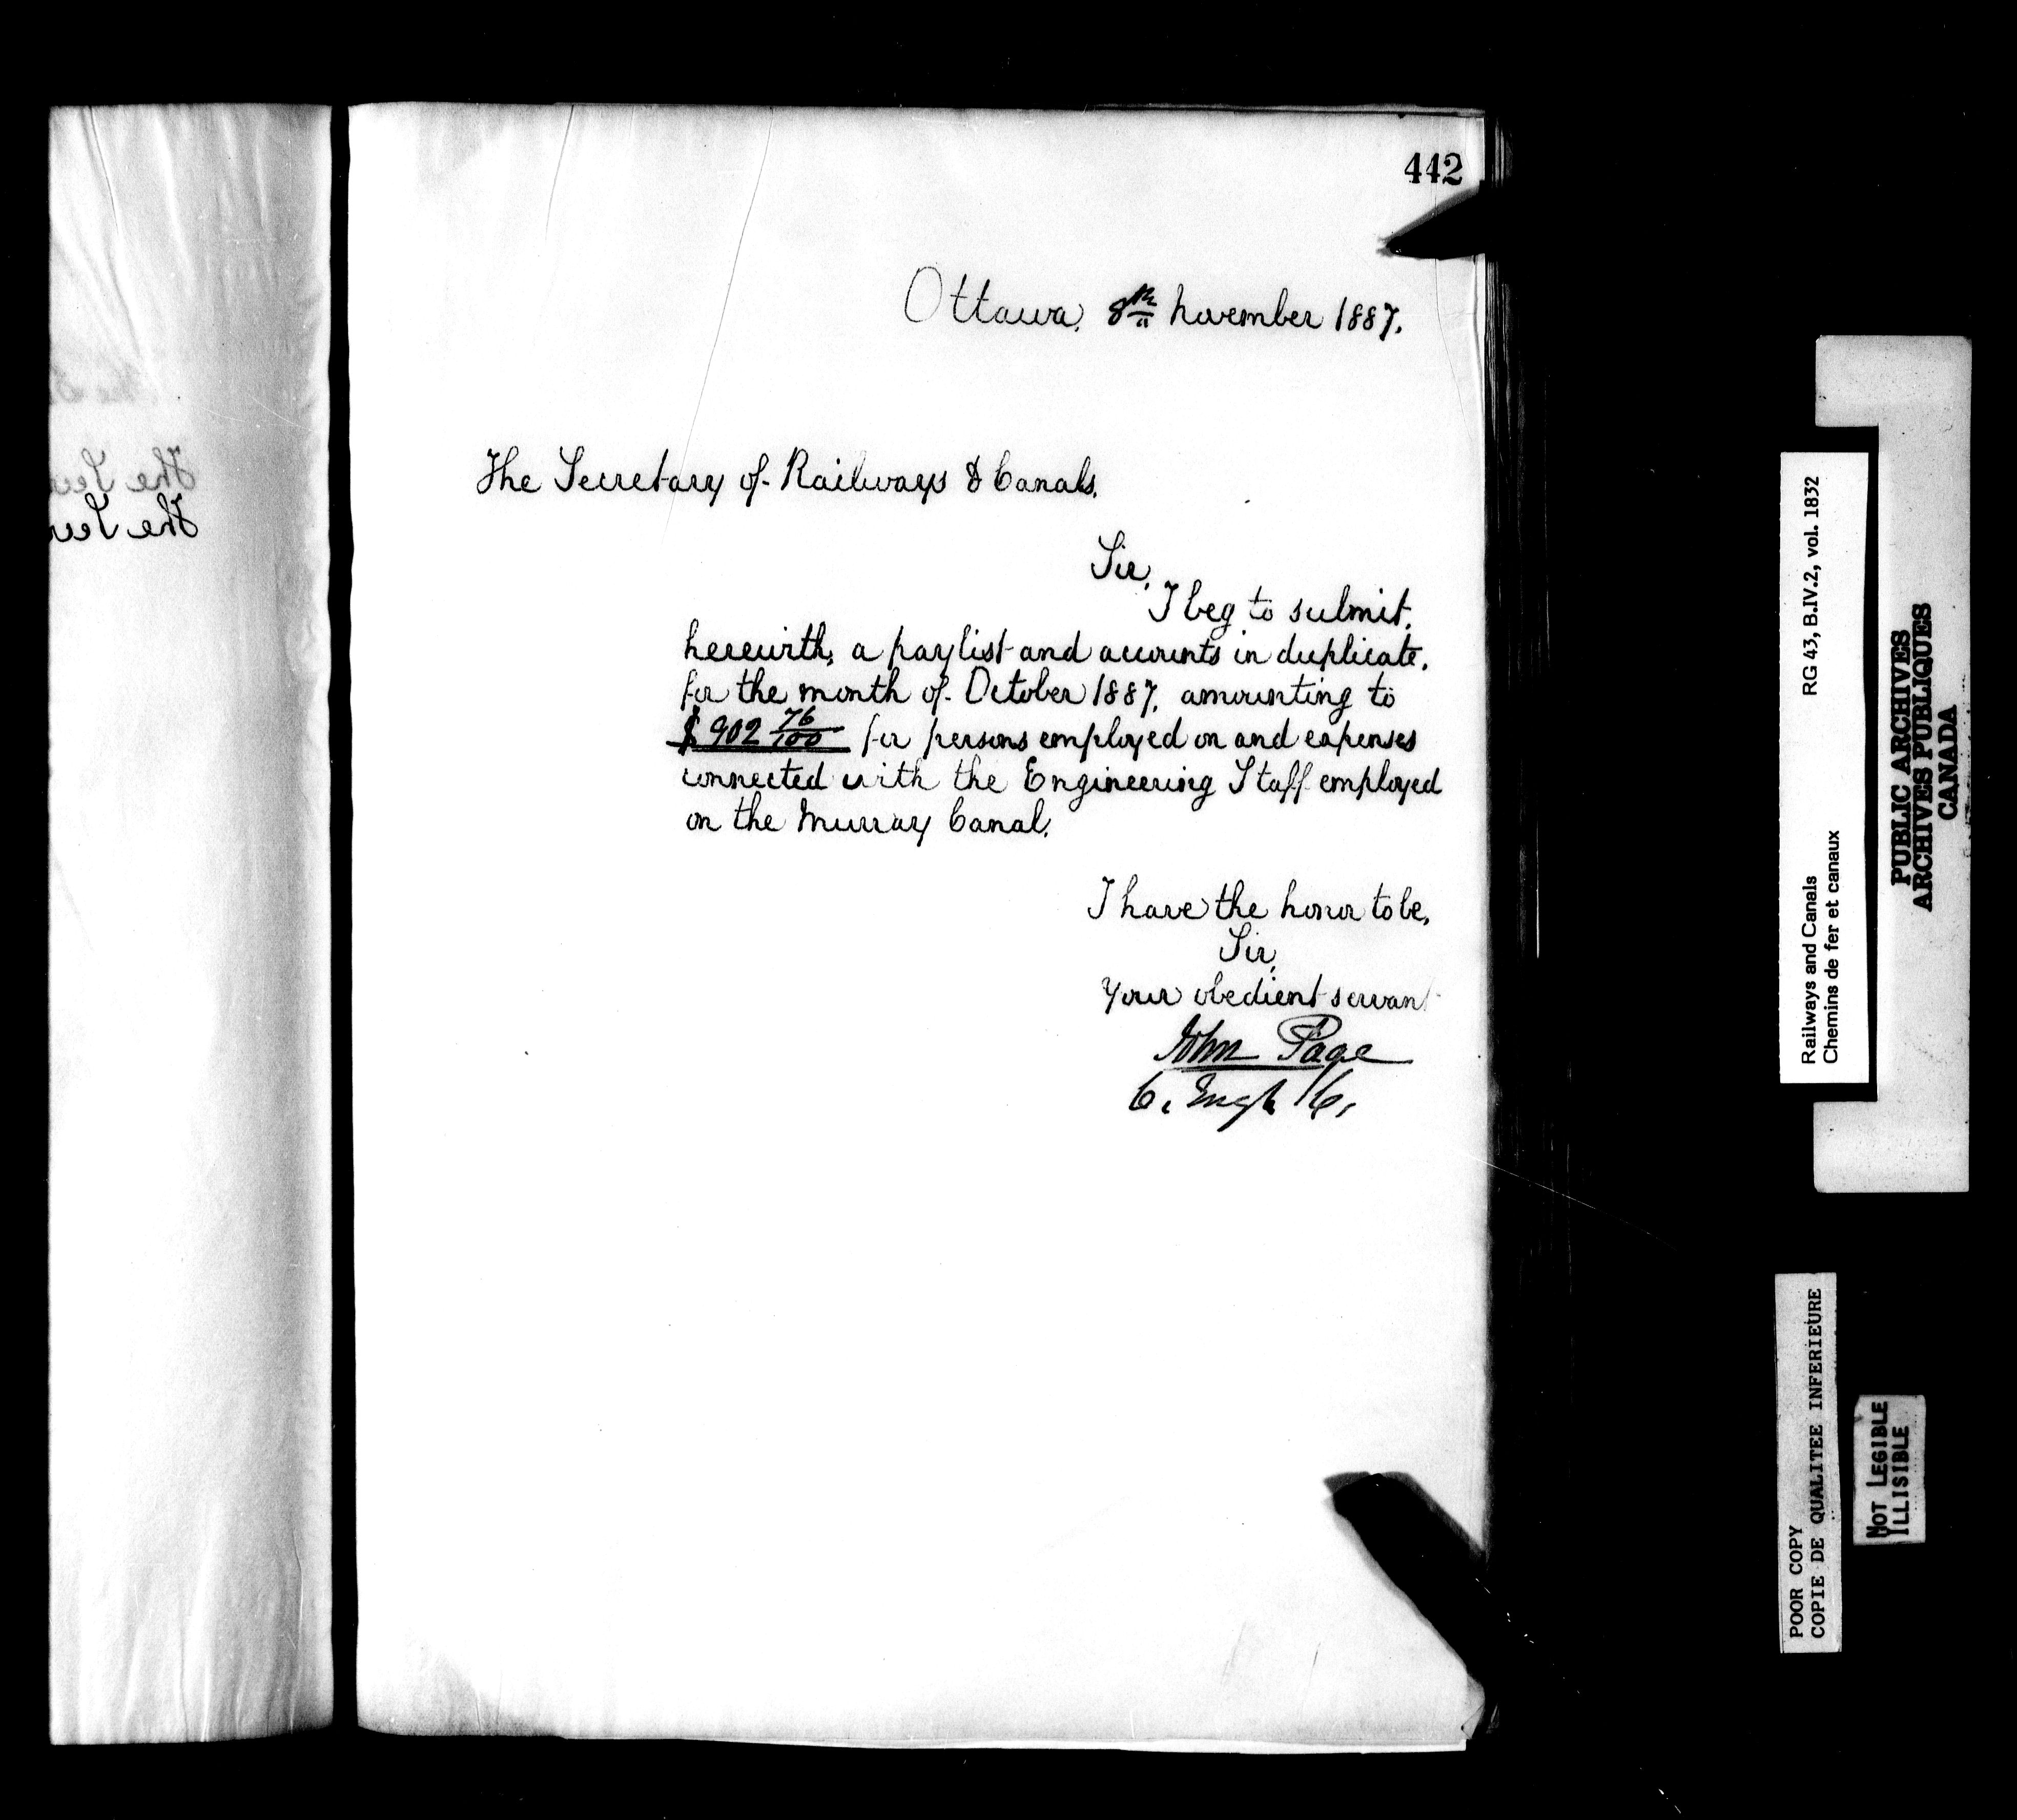 442
Ottawa, 8th November 1887.
The Secretary of Railways & Canals.
Sir,
I beg to submit,
herewith, a paylist and accounts in duplicate,
for the month of October 1887, amounting to
$902 76/100 for persons employed on and expenses
connected with the Engineering Staff employed
on the Murray Canal.
I have the honor to be,
Sir,
Your obedient servant
John Page
C. Engr. C.
RG 43, B.IV.2, vol. 1832
Railways and Canals
Chemins de fer et canaux
PUBLIC ARCHIVES
ARCHIVES PUBLIQUES
CANADA
POOR COPY
COPIE DE QUALITEE INFERIEURE
NOT LEGIBLE
ILLISIBLE